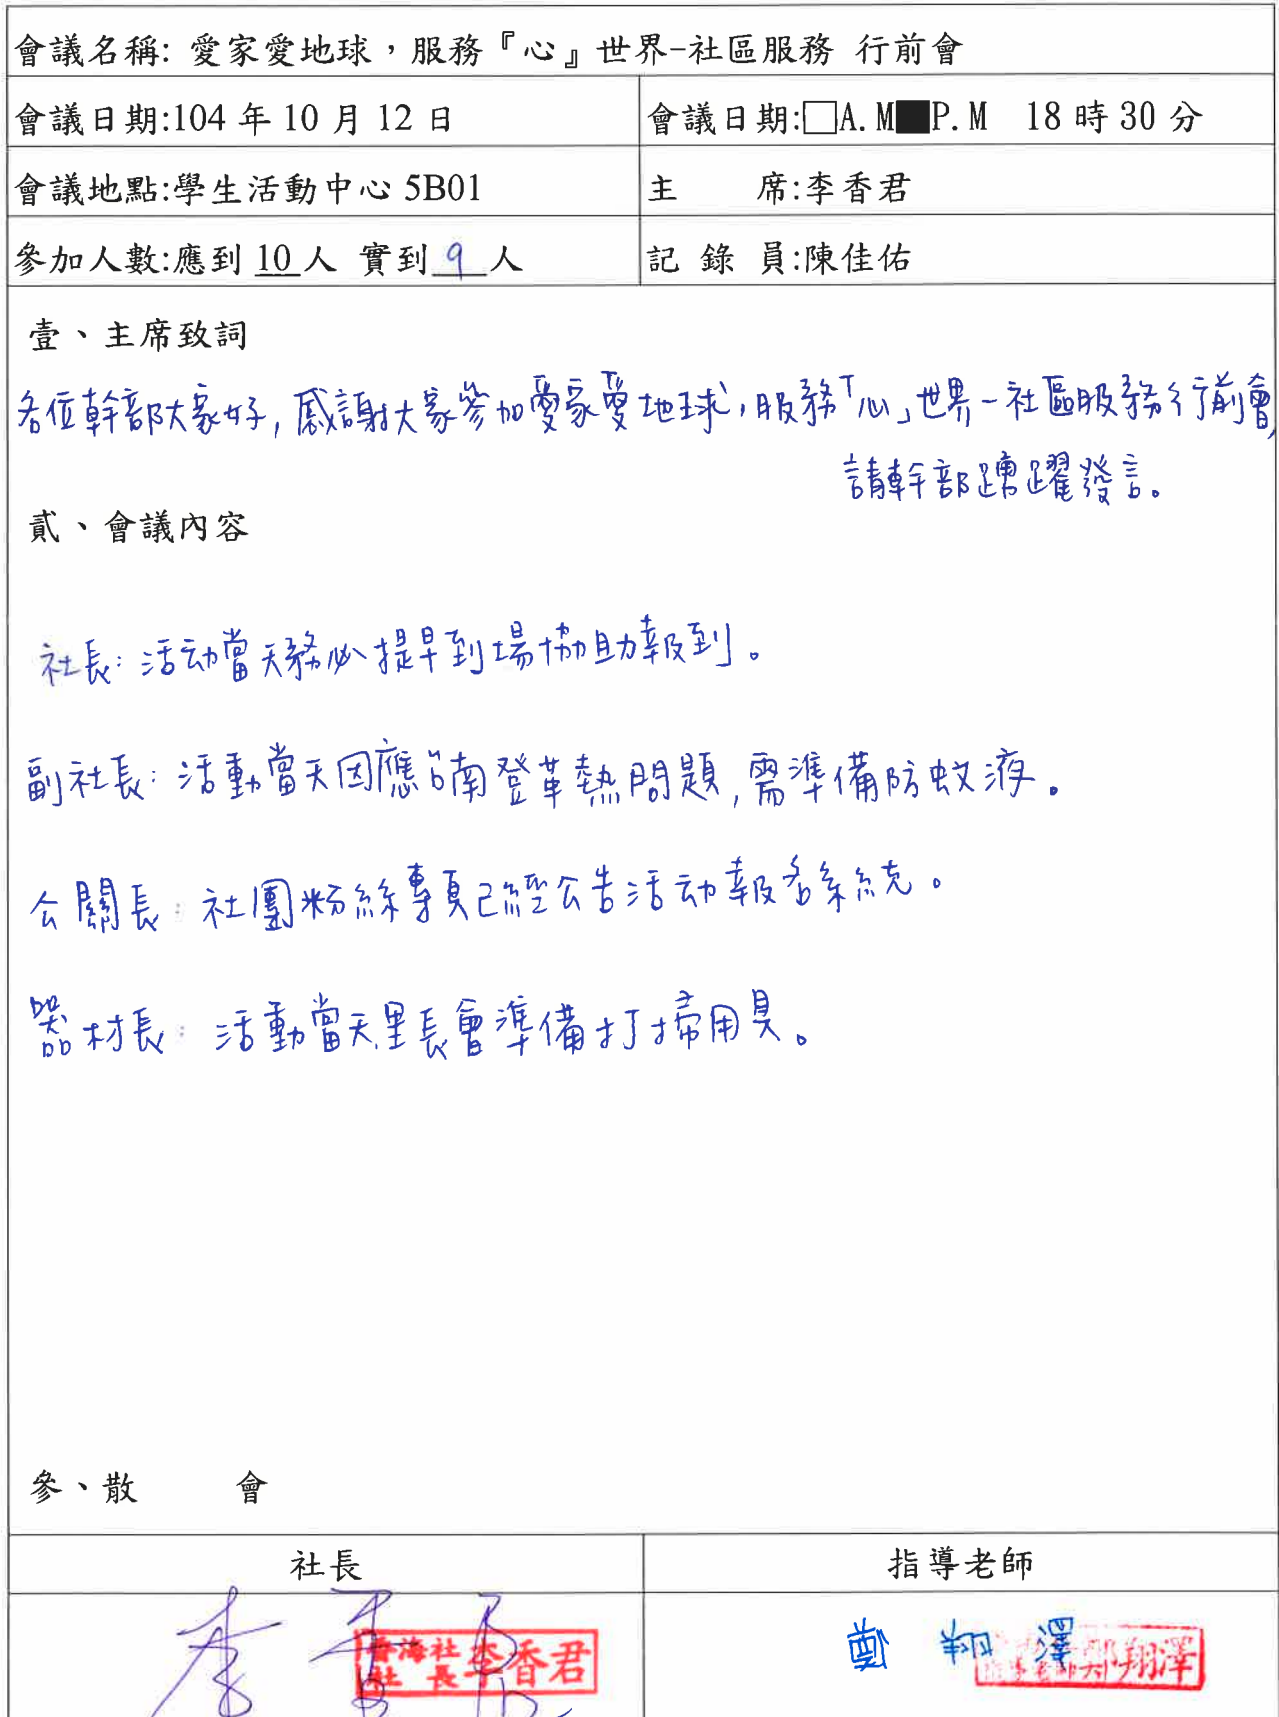 會議名稱: 愛家愛地球，服務『心』世界-社區服務 行前會
會議日期:104 年 10 月 12 日 會議日期:□A.M■P.M 18 時 30 分
會議地點:學生活動中心 5B01 主 席:李香君
參加人數:應到 10 人 實到 9 人 記 錄 員:陳佳佑
壹、主席致詞
各位幹部大家好,感謝大家參加愛家愛地球,服務「心」世界-社區服務行前會,
請幹部踴躍發言。
貳、會議內容
社長:活动當天務必提早到場協助報到。
副社長:活動當天因應台南登革熱問題,需準備防蚊液。
公關長:社團粉絲專頁已經公告活动報名系統。
器材長:活動當天里長會準備打掃用具。
參、散 會
社長 指導老師
李香君
社長 李香君
翔澤
翔澤